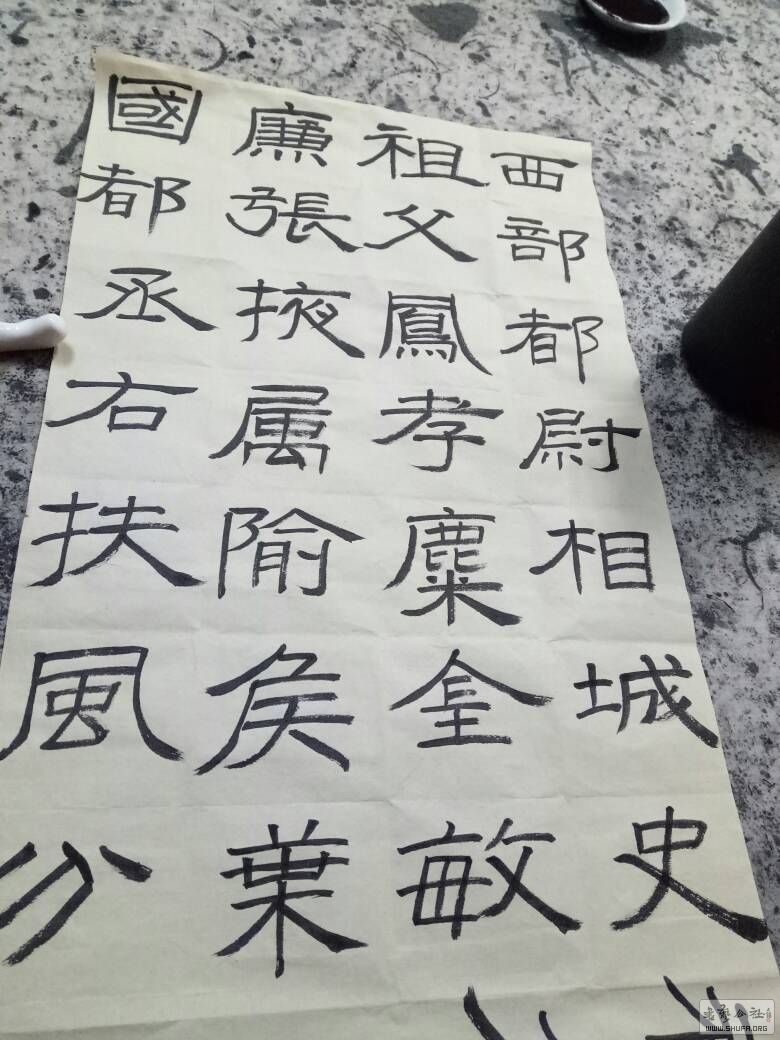 西部都尉相城史
祖父鳳孝麋金敏
廉張掖属隃侯葉
國都丞右扶風
書藝公社
WWW.SHUFA.ORG